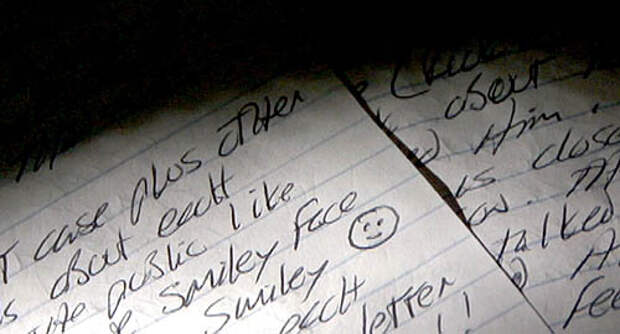 T case plus other
s about each
the public like
e smiley face
smiley
each
letter
about
Him.
is close
talked
fee